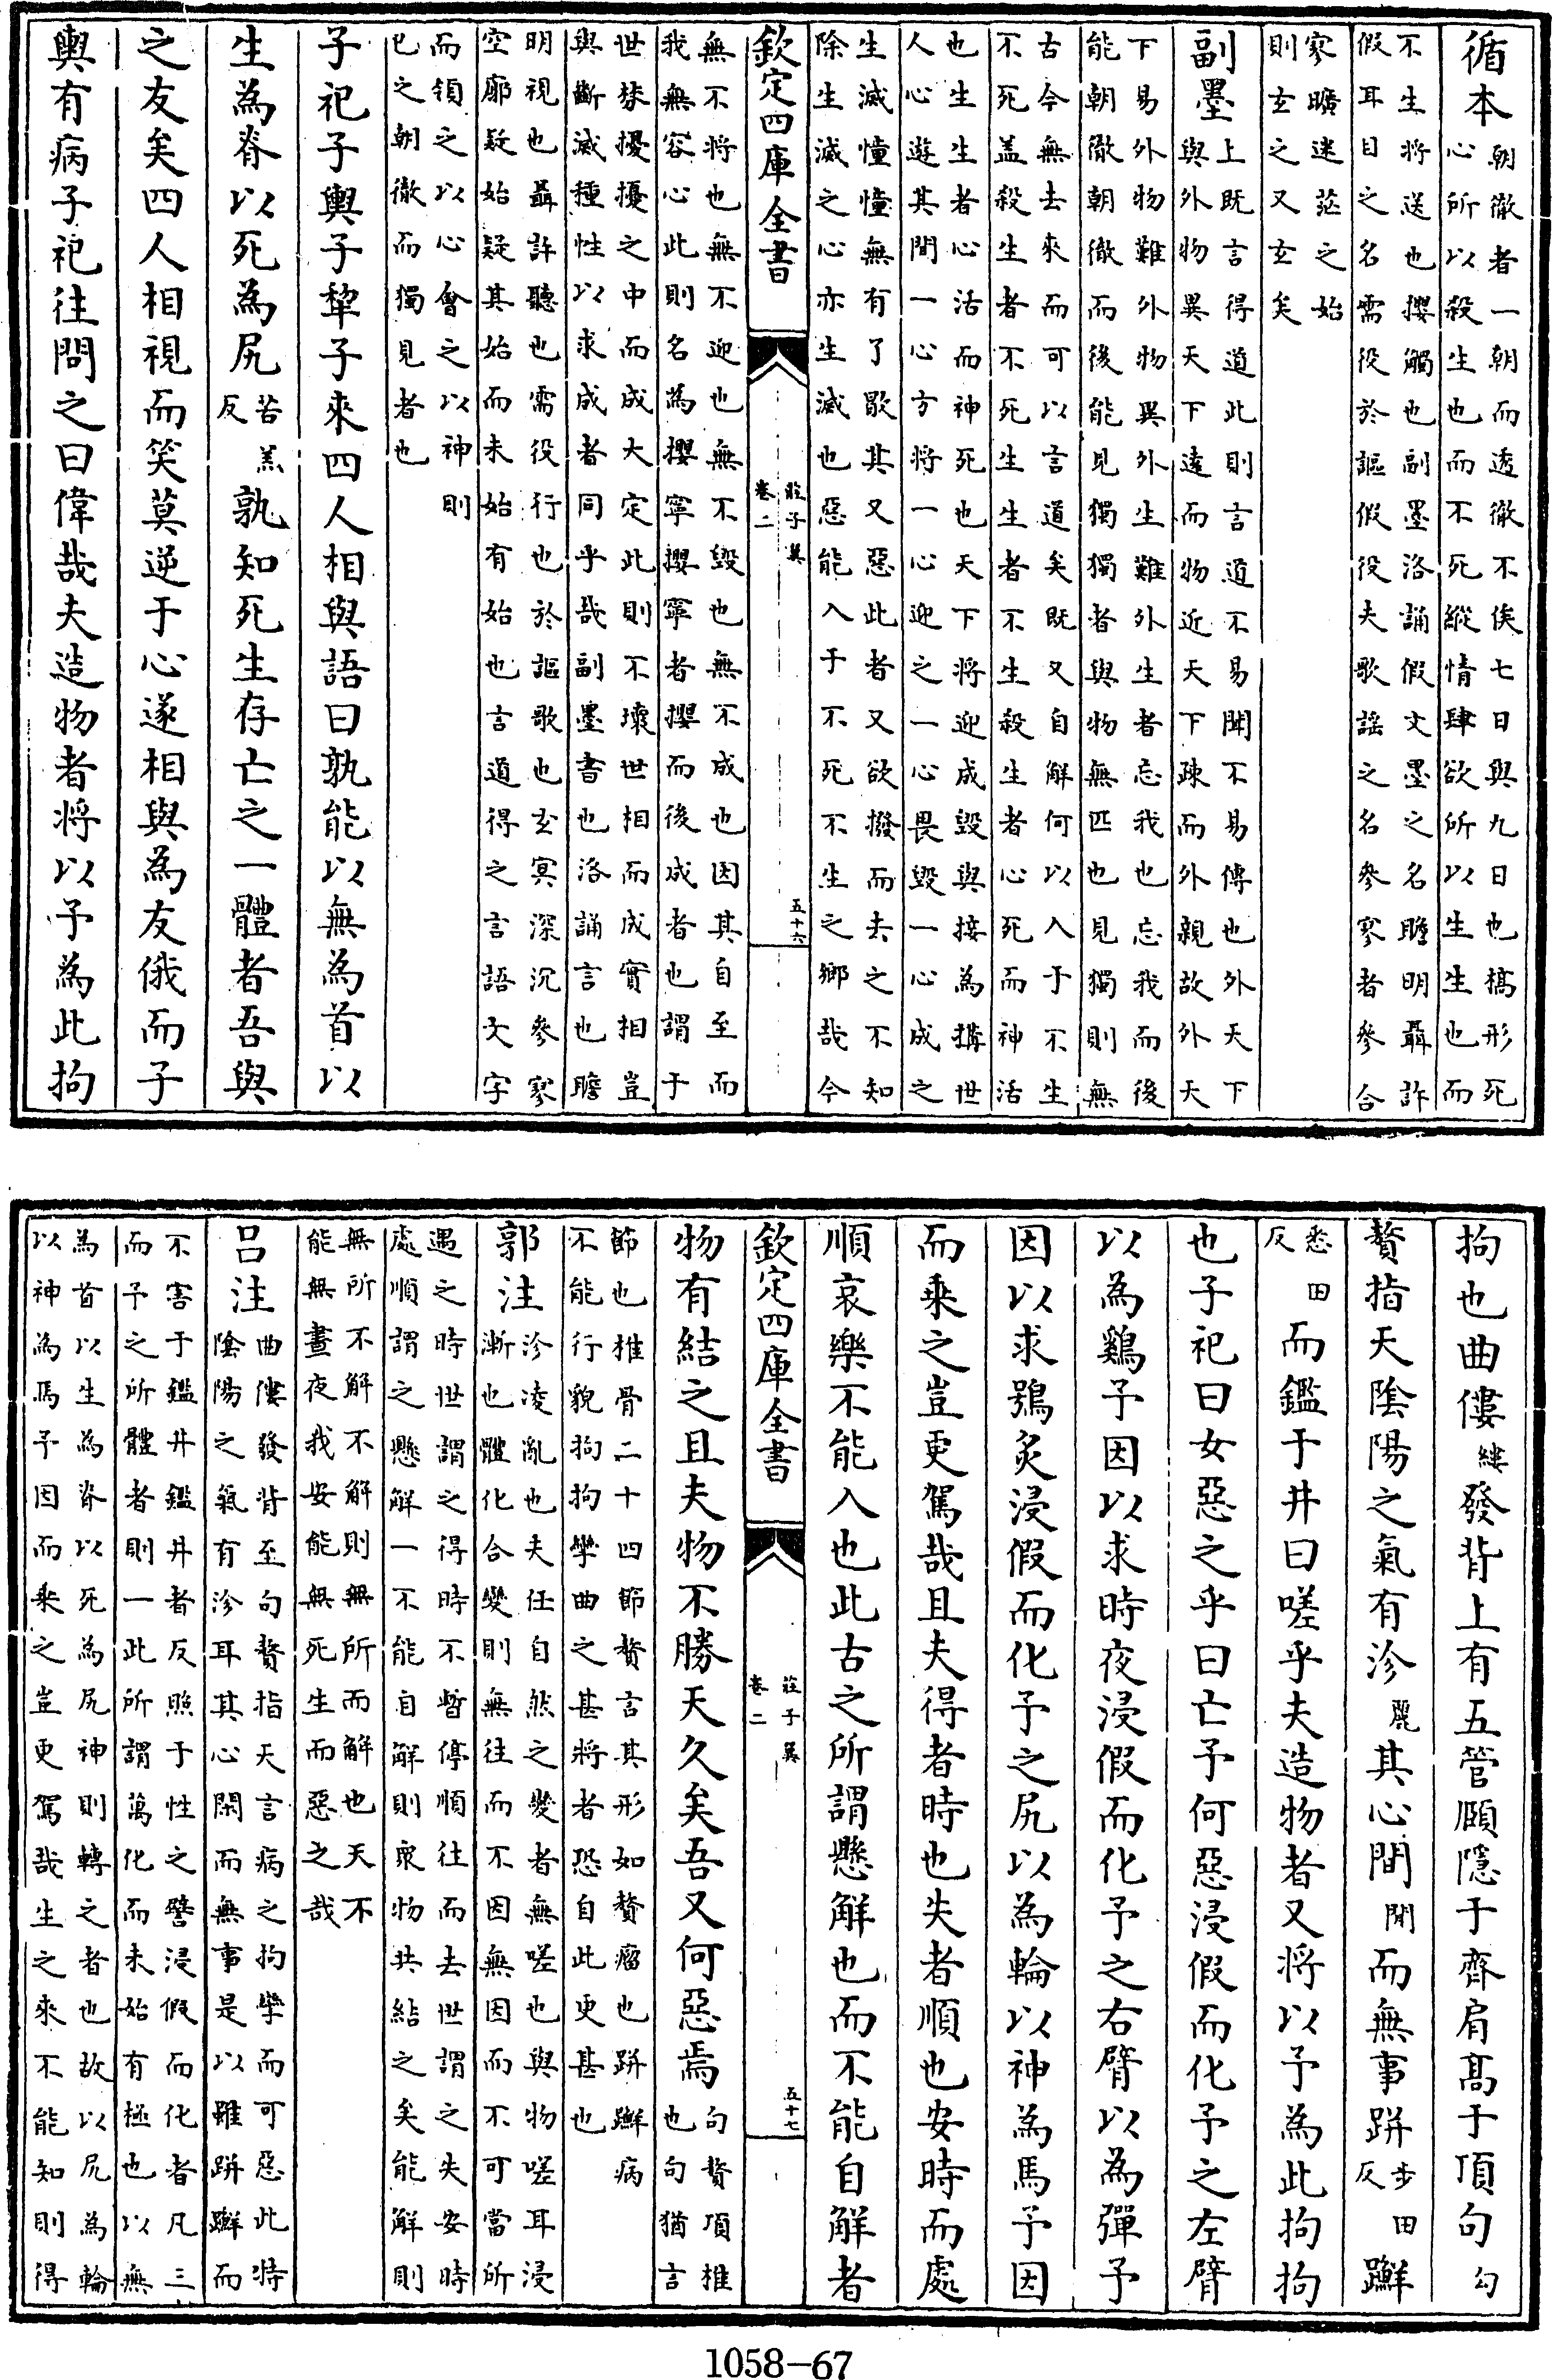 循本朝徹者一朝而透徹不俟七日與九日也槁形死
心所以殺生也而不死縱情肆欲所以生生也而
不生將送也攖觸也副墨洛誦假文墨之名瞻明聶許
假耳目之名需役於謳假役夫歌謡之名參寥者參合
寥曠迷茫之始
則玄之又玄矣
副墨上既言得道此則言道不易聞不易傳也外天下
與外物異天下遠而物近天下疎而外親故外天
下易外物難外物異外生難外生者忘我也忘我而後
能朝徹朝徹而後能見獨獨者與物無匹也見獨則無
古今無去來而可以言道矣既又自解何以入于不生
不死盖殺生者不死生生者不生殺生者心死而神活
也生生者心活而神死也天下將迎成毀與接為搆世
人心遊其間一心方將一心迎之一心畏毀一心成之
生滅憧憧無有了歇其又惡此者又欲撥而去之不知
除生滅之心亦生滅也惡能入于不死不生之鄉哉今
欽定四庫全書 莊子翼 卷二 五十六
無不將也無不迎也無不毀也無不成也因其自至而
我無容心此則名為攖寧攖寧者攖而後成者也謂于
世棼擾擾之中而成大定此則不壞世相而成實相豈
與斷滅種性以求成者同乎哉副墨書也洛誦言也瞻
明視也聶許聽也需役行也於謳歌也玄冥深沉參寥
空廓疑始疑其始而未始有始也言道得之言語文字
而領之以心會之以神則
已之朝徹而獨見者也
子祀子輿子犂子來四人相與語曰孰能以無為首以
生為脊以死為尻苦羔反孰知死生存亡之一體者吾與
之友矣四人相視而笑莫逆于心遂相與為友俄而子
輿有病子祀往問之曰偉哉夫造物者將以予為此拘
拘也曲僂縷發背上有五管頤隱于齊肩髙于頂句勾
贅指天陰陽之氣有沴麗其心間閒而無事跰步田反𨇤
悉田反而鑑于井曰嗟乎夫造物者又將以予為此拘拘
也子祀曰女惡之乎曰亡予何惡浸假而化予之左臂
以為鷄予因以求時夜浸假而化予之右臂以為彈予
因以求鴞炙浸假而化予之尻以為輪以神為馬予因
而乘之豈更駕哉且夫得者時也失者順也安時而處
順哀樂不能入也此古之所謂懸解也而不能自解者
欽定四庫全書 莊子翼 卷二 五十七
物有結之且夫物不勝天久矣吾又何惡焉句贅項椎
也句猶言
節也椎骨二十四節贅言其形如贅瘤也跰𨇤病
不能行貌拘拘攣曲之甚將者恐自此更甚也
郭注沴凌亂也夫任自然之變者無嗟也與物嗟耳浸
漸也體化合變則無往而不因無因而不可當所
遇之時世謂之得時不暫停順往而去世謂之失安時
處順謂之懸解一不能自解則衆物共結之矣能解則
無所不解不解則無所而解也天不
能無晝夜我安能無死生而惡之哉
吕注曲僂發背至句贅指天言病之拘攣而可惡此特
陰陽之氣有沴耳其心閑而無事是以雖跰𨇤而
不害于鑑井鑑井者反照于性之譬浸假而化者凡三
而予之所體者則一此所謂萬化而未始有極也以無
為首以生為脊以死為尻神則轉之者也故以尻為輪
以神為馬予因而乘之豈更駕哉生之來不能知則得
1058-67